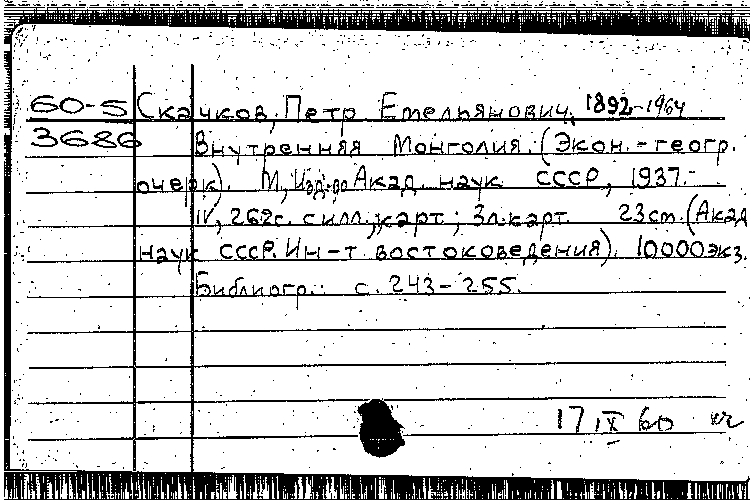 60-5 Скачков, Петр Емельянович, 1892-1964
3686 Внутренняя Монголия. (Экон.-геогр.
очерк). М., Изд-во Акад. наук СССР, 1937.-
IV, 262с. с илл., карт.; 3л. карт 23см. (Акад
наук СССР. Ин-т востоковедения). 10000экз.
Библиогр.: с. 243-255.
17 IX 60